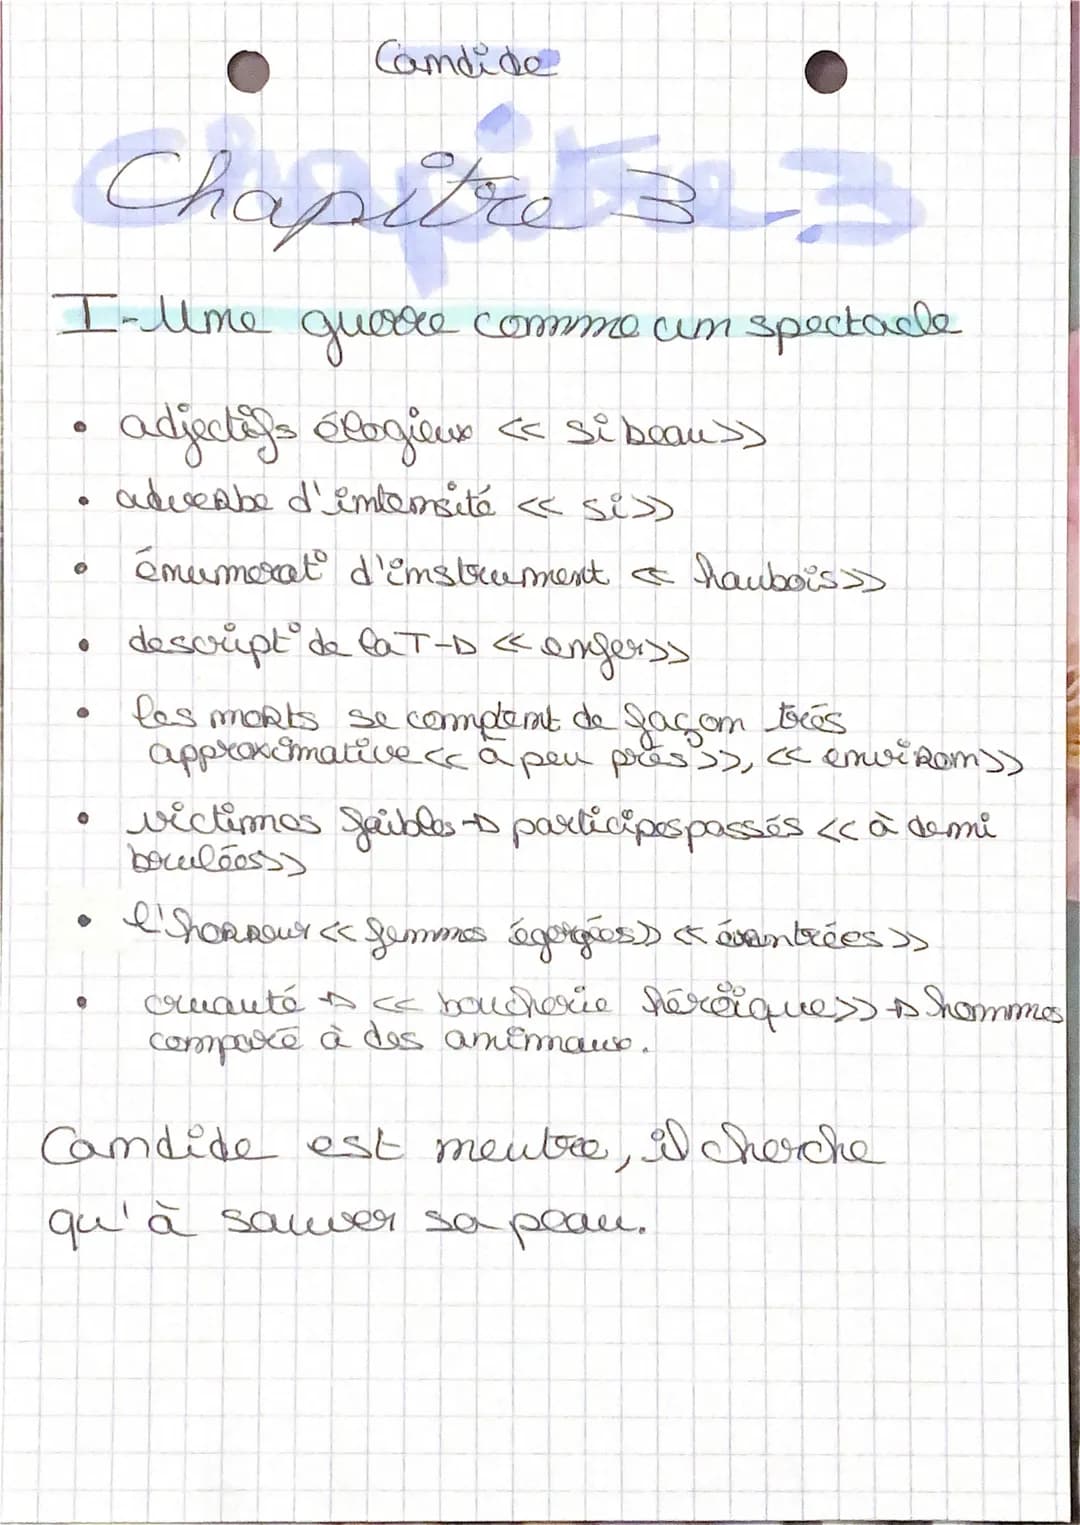 Candide
Chapitre 3
I-Une guerre comme un spectacle
• adjectifs élogieux << si beau >>
• adverbe d'intensité << si >>
• énumerat° d'instrument << haubois >>
• descript° de la T-> << enfer >>
• les morts se comptent de façon très
approximative << à peu près >>, << environ >>
• victimes faibles -> participes passés << à demi
brulées >>
• l'horreur << femmes égorgées >> << éventrées >>
• cruauté -> << boucherie héroïque >> -> hommes
comparé à des animaux.
Candide est neutre, il cherche
qu'à sauver sa peau.